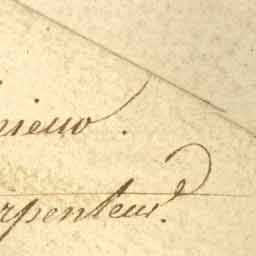 nieux.
rpenteur.